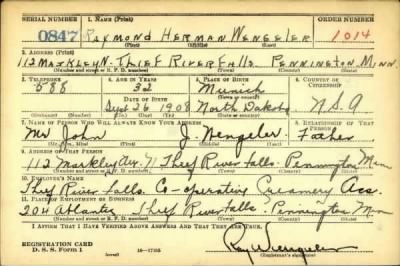 SERIAL NUMBER 1. NAME (Print) ORDER NUMBER
0847 RAYMOND HERMAN WENGELER 1014
(First) (Middle) (Last)
2. ADDRESS (Print)
112 MARKLEY N. THIEF RIVER FALLS. PENNINGTON, MINN.
(Number and street or R. F. D. number) (Town) (County) (State)
3. TELEPHONE 4. AGE IN YEARS 5. PLACE OF BIRTH 6. COUNTRY OF CITIZENSHIP
588 32 Munich
DATE OF BIRTH (Town or county)
Sept 26 1908 North Dakota U.S.A
(Mo.) (Day) (Yr.) (State or country)
7. NAME OF PERSON WHO WILL ALWAYS KNOW YOUR ADDRESS 8. RELATIONSHIP OF THAT PERSON
Mr John J. Wengeler Father
(Mr., Mrs., Miss) (First) (Middle) (Last)
9. ADDRESS OF THAT PERSON
112 Markley Ave. N. Thief River Falls. Pennington Minn
(Number and street or R. F. D. number) (Town) (County) (State)
10. EMPLOYER'S NAME
Thief River Falls. Co-operative Creamery Ass.
11. PLACE OF EMPLOYMENT OR BUSINESS
204 Atlantic Thief River Falls. Pennington Minn
(Number and street or R. F. D. number) (Town) (County) (State)
I AFFIRM THAT I HAVE VERIFIED ABOVE ANSWERS AND THAT THEY ARE TRUE.
REGISTRATION CARD
D. S. S. FORM 1 (over) Ray Wengeler
(Registrant's signature)